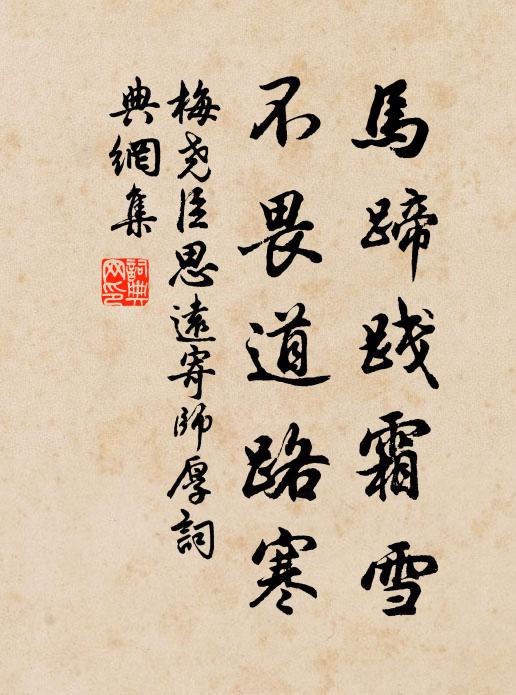 馬蹄践霜雪
不畏道路寒
梅尧臣思遠寄師厚詞
典網集
詞典网印